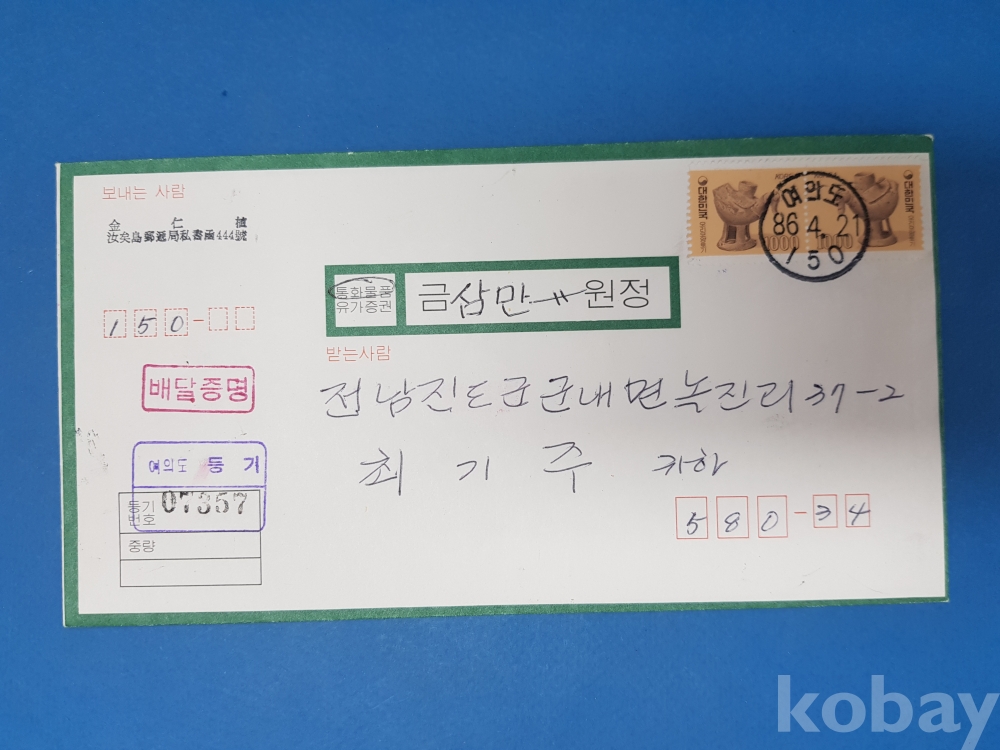 보내는 사람
金 仁 植
汝矣島郵遞局私書函444號
대한민국
1000
1000
대한민국
여의도
86.4.21
150
통화물품
유가증권
금삼만〃원정
150-
받는사람
전남진도군군내면녹진리 37-2
최 기 주 귀하
배달증명
여의도 등기
등기
번호
07357
중량
580-34
kobay